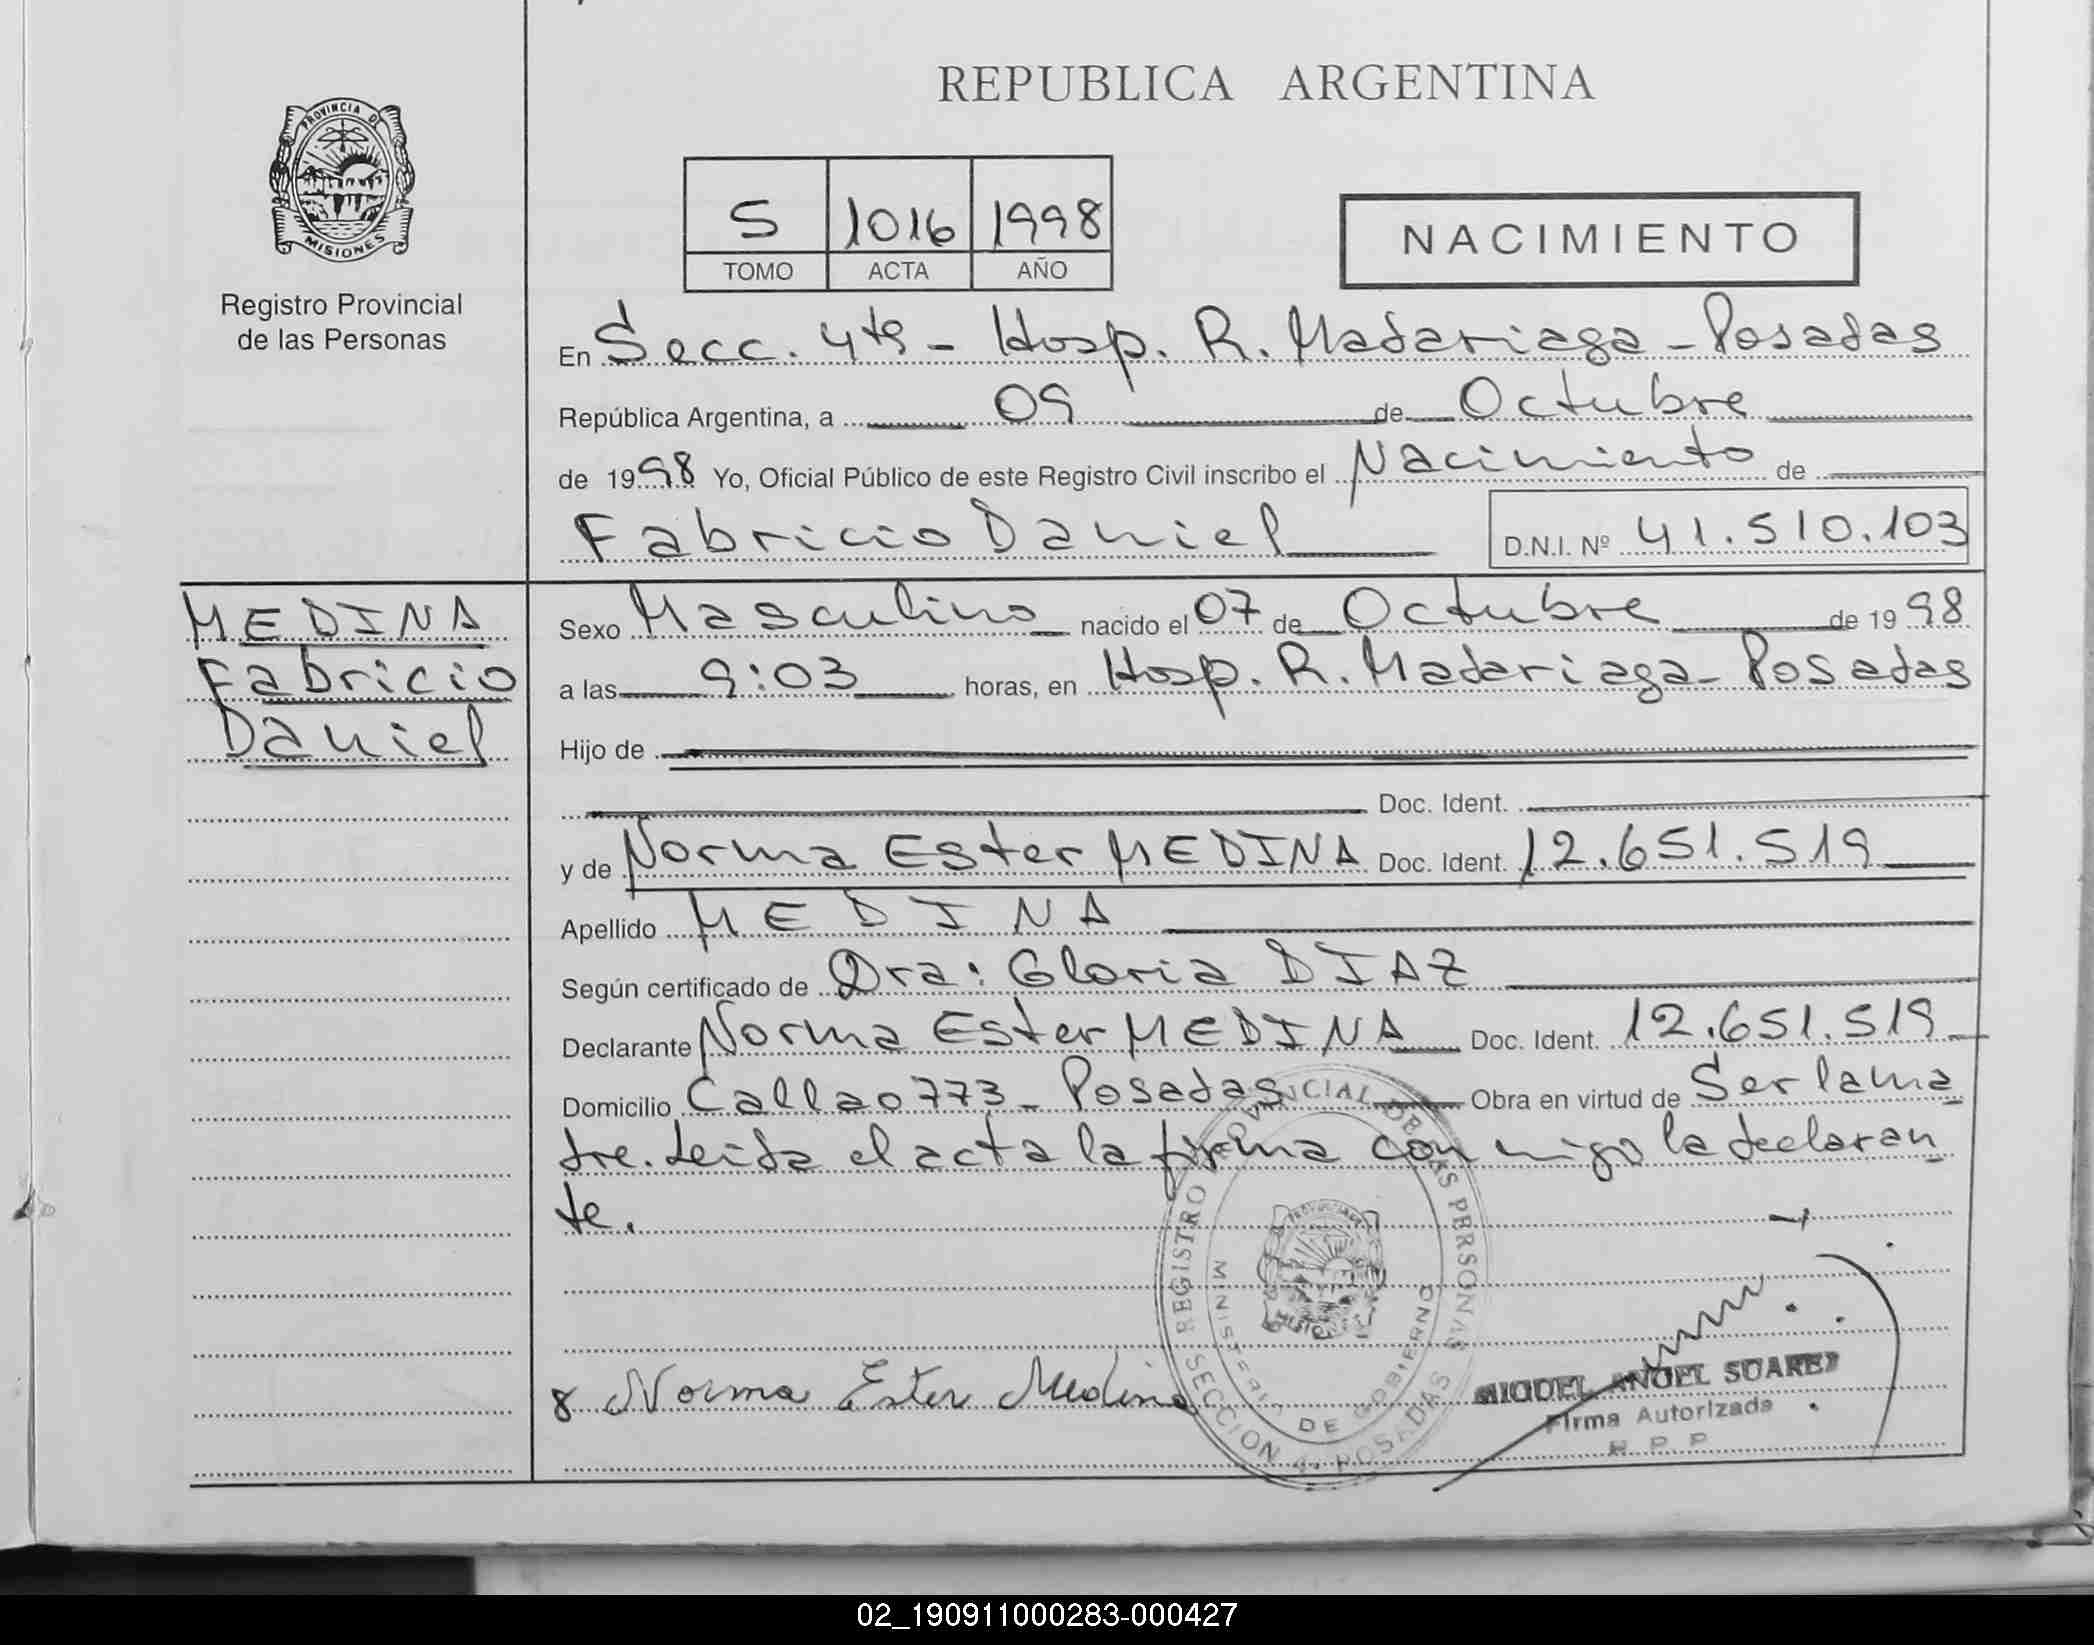 REPUBLICA ARGENTINA
PROVINCIA DE
MISIONES
Registro Provincial
de las Personas
5 1016 1998
TOMO ACTA AÑO
NACIMIENTO
En Secc. 4ta - Hosp. R. Madariaga - Posadas
República Argentina, a 09 de Octubre
de 1998 Yo, Oficial Público de este Registro Civil inscribo el Nacimiento de
Fabricio Daniel D.N.I. Nº 41.510.103
MEDINA
Fabricio
Daniel
Sexo Masculino nacido el 07 de Octubre de 1998
a las 9:03 horas, en Hosp. R. Madariaga - Posadas
Hijo de
Doc. Ident.
y de Norma Ester MEDINA Doc. Ident. 12.651.519
Apellido MEDINA
Según certificado de Dra: Gloria DIAZ
Declarante Norma Ester MEDINA Doc. Ident. 12.651.519
Domicilio Callao 773 - Posadas Obra en virtud de Ser la ma
dre. Leida el acta la firma con migo la declaran
te.
REGISTRO PROVINCIAL DE LAS PERSONAS
MINISTERIO DE GOBIERNO
SECCION 4a POSADAS
Norma Ester Medina
MIGUEL ANGEL SUAREZ
Firma Autorizada
R P P
02_190911000283-000427